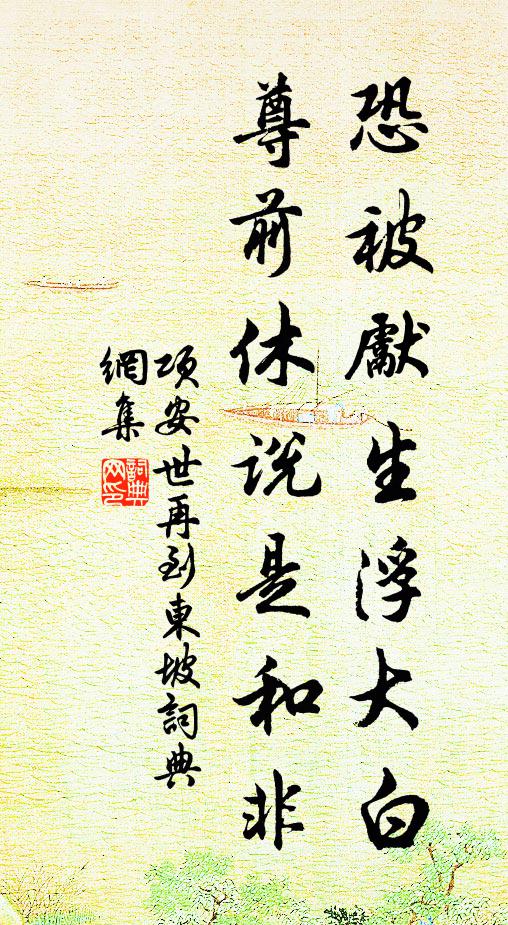 恐被獻生浮大白
尊前休說是和非
項安世再到東坡詞典
網集
詞典
網印